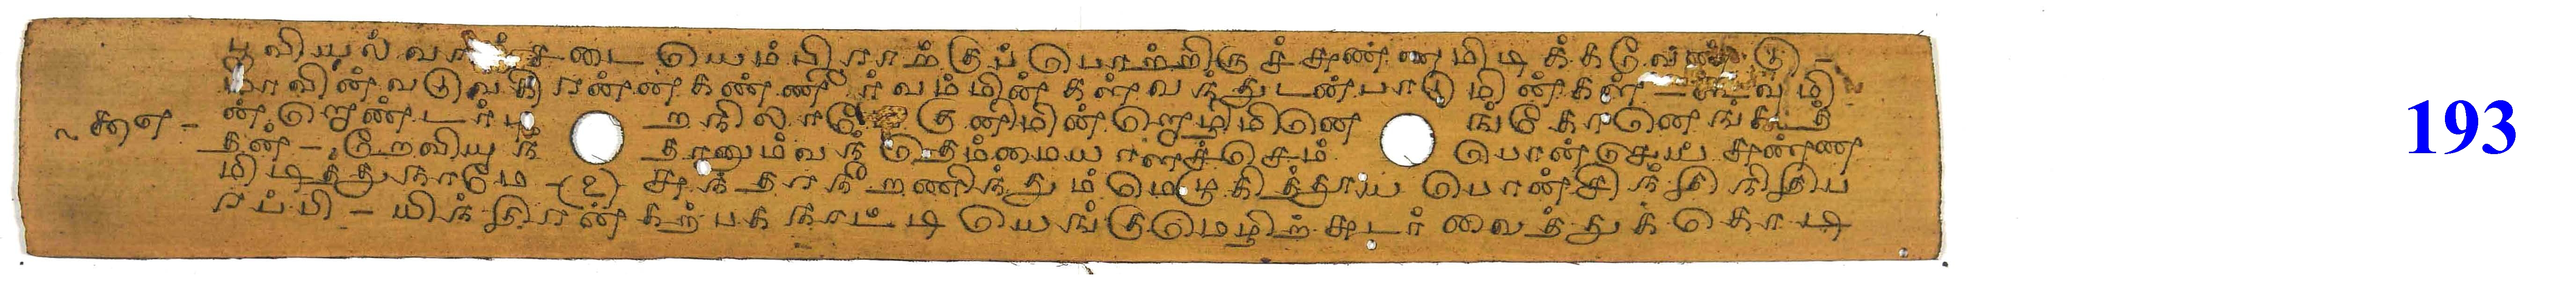 பூவியல் வார்சடை யெம்பிராற்குப் பொற்றிருச் சுண்ணமிடிக்க வேண்டு
மாவின் வடுவகி ரன்ன கண்ணீர் வம்மின்கள் வந்துடன் பாடுமின்கள் – கூவுமி
ன் றொண்டர் புறநிலாமே குனிமின் றொழுமினெங்கோனெங்கூத்
தன் – றேவியுந் தானும்வந் தெம்மையாளச் செம்பொன்செய் சுண்ண
மிடித்துநாமே – (௨) சுந்தர நீறணிந்தும் மெழுகித்தூய பொன்சிந்தி நிதிப
ரப்பி – யிந்திரன் கற்பக நாட்டி யெங்குமெழிற் சுடர் வைத்துக் கொடி
193